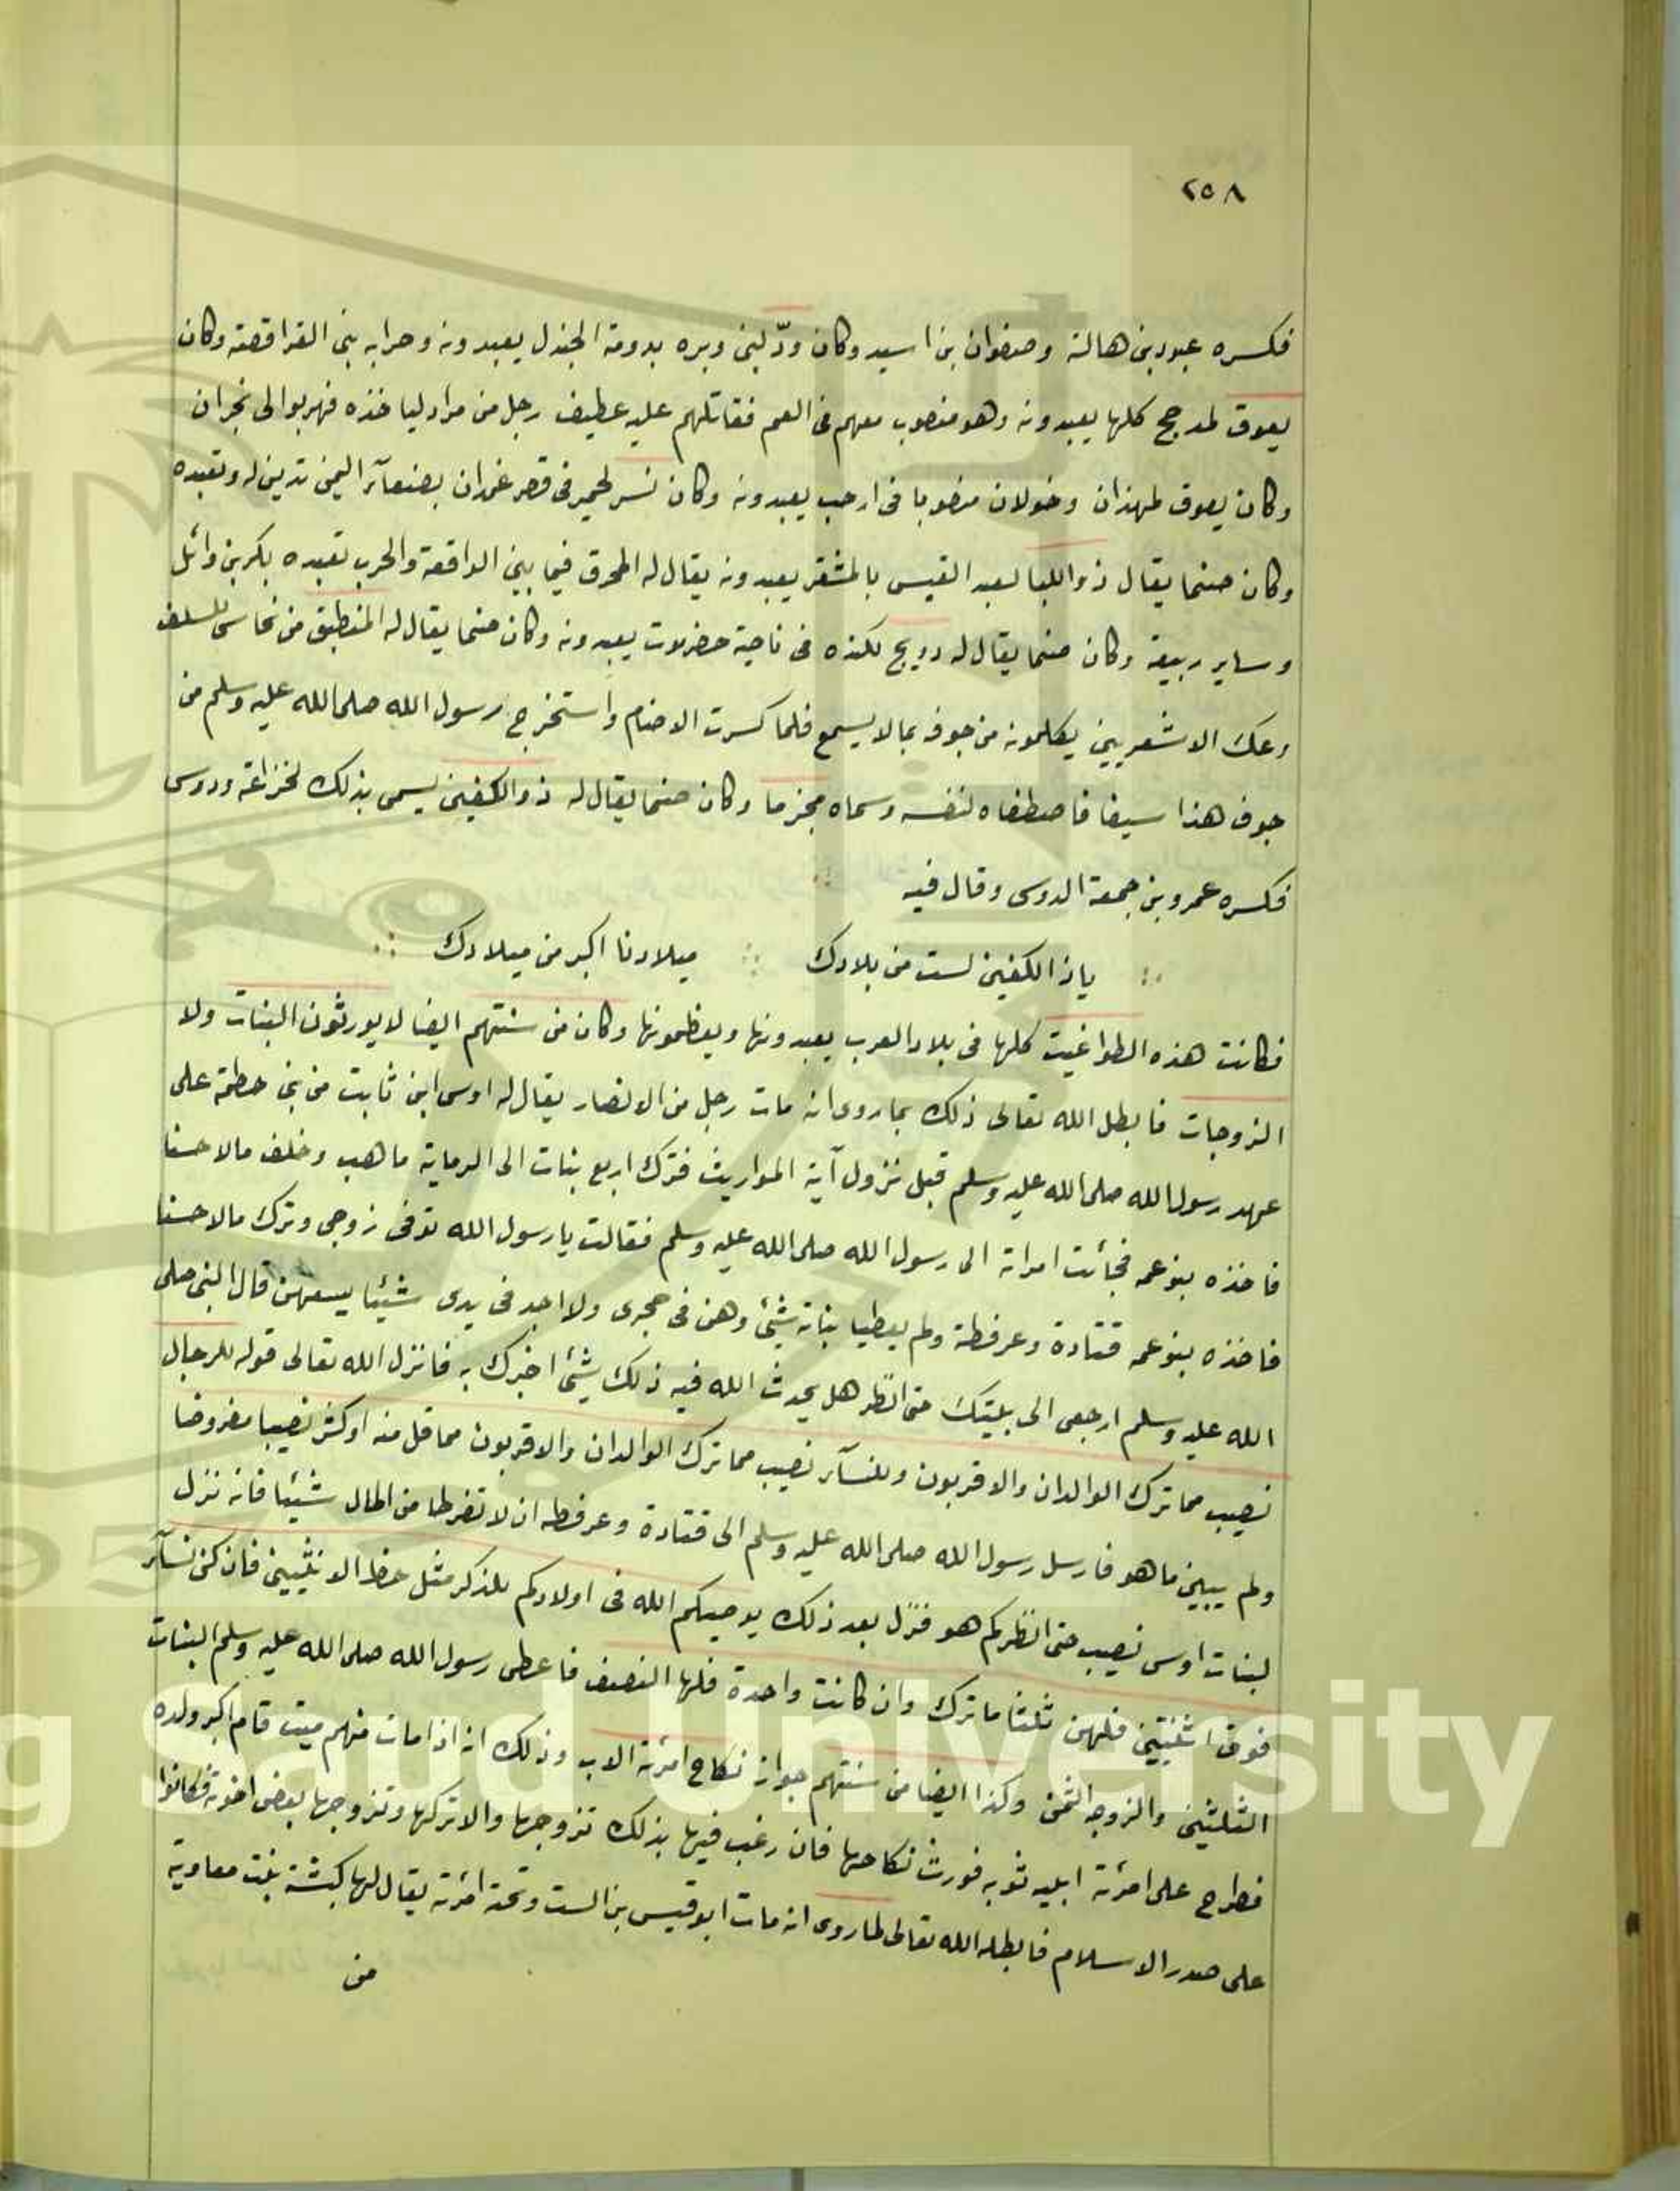 ٢٥٨
فكسره عبود بن هالة وصفوان بن اسيد وكان ودّ لبنى وبره بدومة الجندل يعبدونه وحرابه بنى القراقصة وكان
يعوق لمدحج كلها يعبدونه وهو منصوب معهم فى العم فقاتلهم عليه عطيف رجل من مراد ليا خذه فهربوا الى نجران
وكان يعوق لهمذان وخولان منصوبا فى ارحب يعبدونه وكان نسر لحمير فى قصر غمدان بصنعآء اليمن تدين له وتعبده
وكان صنما يقال ذو اللبا لعبد القيس بالمشقر يعبدونه يقال له المحرق فيما بين الواقعة والحرب تعبده بكر بن وائل
وساير ربيعة وكان صنما يقال له دويج لكنده فى ناحية حضرموت يعبدونه وكان صنما يقال له المنطبق من نحاس للسلف
وعك الاشعريين يكلمونه من جوفه بمالا يسمع فلما كسرت الاصنام واستخرج رسول الله صلى الله عليه وسلم من
جوف هذا سيفا فاصطفاه لنفسه وسماه مجزما وكان صنما يقال له ذو الكفين يسمى بذلك لخزاعة ودوس
فكسره عمرو بن جمعة الدوسى وقال فيه
ياذا الكفين لست من بلادك ميلادنا اكبر من ميلادك
فكانت هذه الطواغيت كلها فى بلاد العرب يعبدونها ويعظمونها وكان من سنتهم ايضا لا يورثون البنات ولا
الزوجات فابطل الله تعالى ذلك بما روى انه مات رجل من الانصار يقال له اوس ابن ثابت من بنى حطمة على
عهد رسول الله صلى الله عليه وسلم قبل نزول آية المواريث فترك اربع بنات الى الرماية ماهب وخلف مالا حسنا
فاخذه بنو عمه فجأت امراته الى رسول الله صلى الله عليه وسلم فقالت يا رسول الله توفى زوجى وترك مالا حسنا
فاخذه بنو عمه قتادة وعرفطة ولم يعطيا بناته شيئ وهن فى حجرى ولا اجد فى يدى شيئا يسعهن قال النبى صلى
الله عليه وسلم ارجعى الى بيتك حتى انظر هل يحدث الله فيه ذلك شيئ اخبرك به فانزل الله تعالى قوله للرجال
نصيب مما ترك الوالدان والاقربون وللنسآء نصيب مما ترك الوالدان والاقربون مما قل منه او كثر نصيبا مفروضا
ولم يبين ما هو فارسل رسول الله صلى الله عليه وسلم الى قتادة وعرفطه ان لا تفرطا من المال شيئا فانه نزل
لبنات اوس نصيب حتى انظركم هو فنزل بعد ذلك يوصيكم الله فى اولادكم للذكر مثل حظ الانثيين فان كن نسآء
فوق اثنتين فلهن ثلثا ماترك وان كانت واحدة فلها النصف فاعطى رسول الله صلى الله عليه وسلم البنات
الثلثين والزوجه الثمن وكذا ايضا من سنتهم جواز نكاح امرئة الاب وذلك انه اذا مات منهم ميت قام اكبر ولده
فطرح على امرئة ابليه ثوبه فورث نكاحها فان رغب فيها بذلك تزوجها والا تركها وتزوجها بعض اخوته فكانوا
على صدر الاسلام فابطله الله تعالى لما روى انه مات ابو قيس بن الست وتحته امرئة يقال لها كبشة بنت معاوية
من
King Saud University